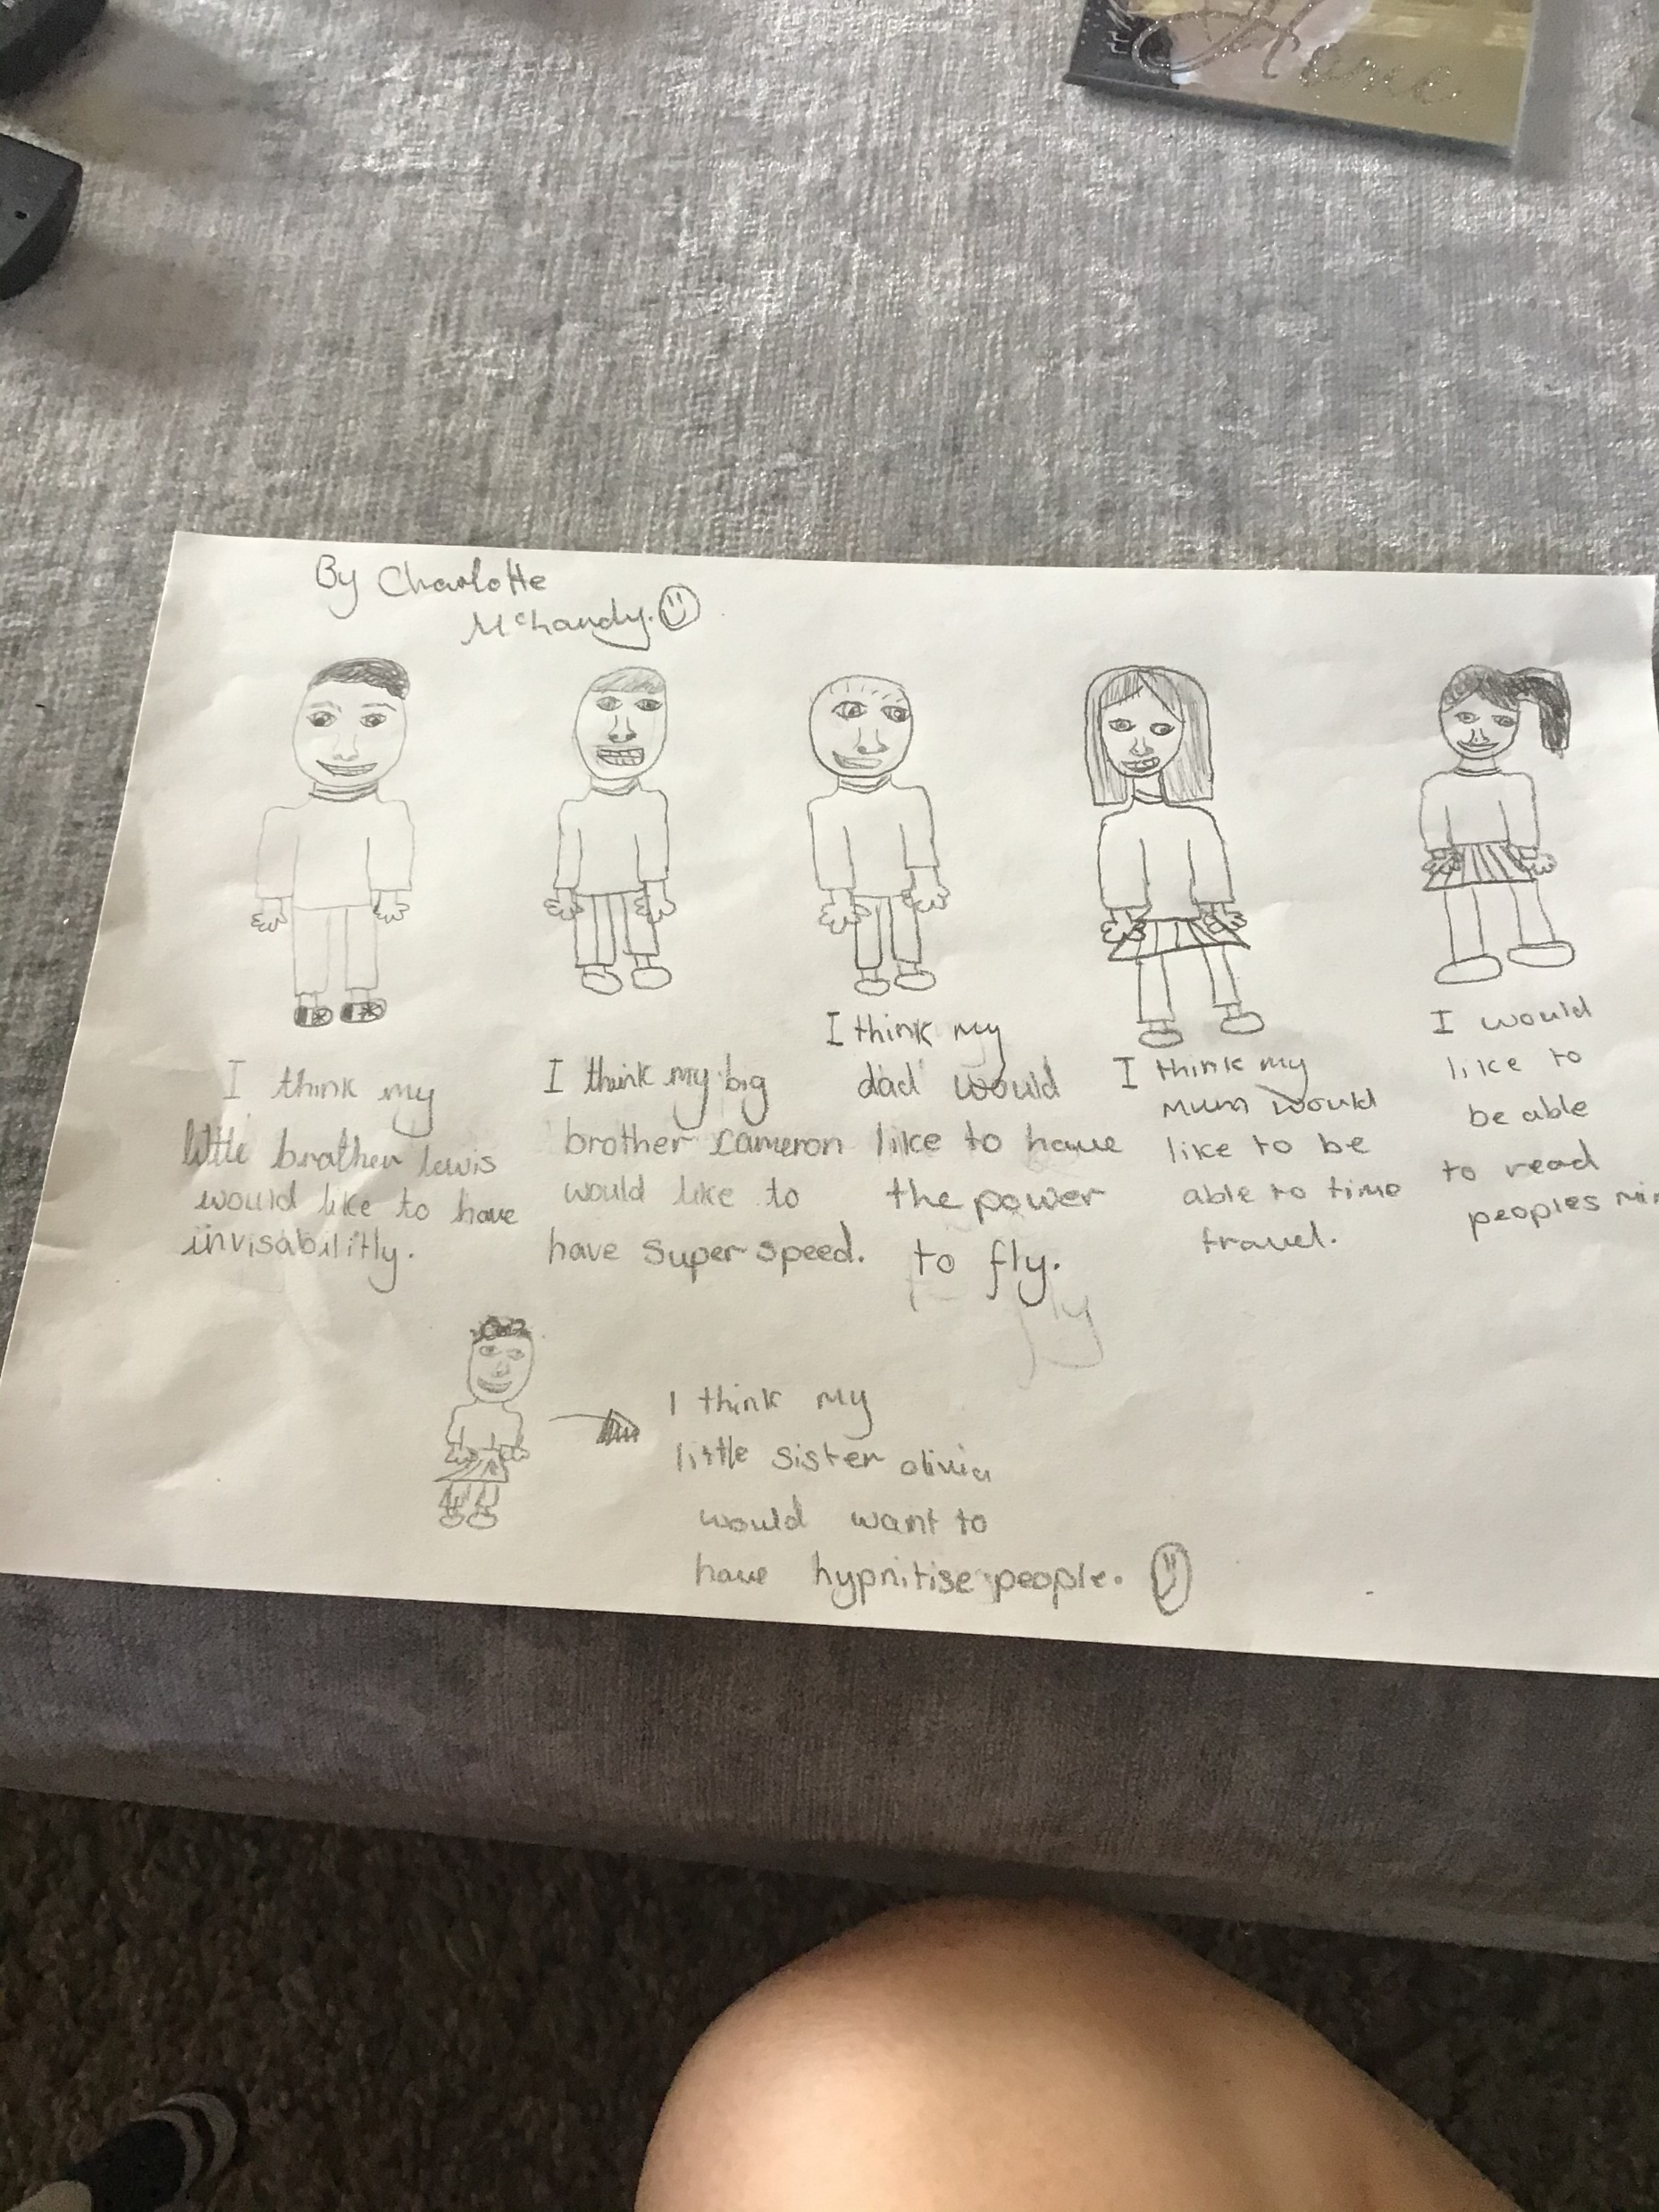 Home
By Charlotte
McLandy.
I think my
little brother lewis
would like to have
invisabilitly.
I think my big
brother Cameron
would like to
have super speed.
I think my
dad would
like to have
the power
to fly.
fly
I think my
mum would
like to be
able to time
travel.
I would
like to
be able
to read
peoples min
I think my
little sister olivia
would want to
have hypnitise people.